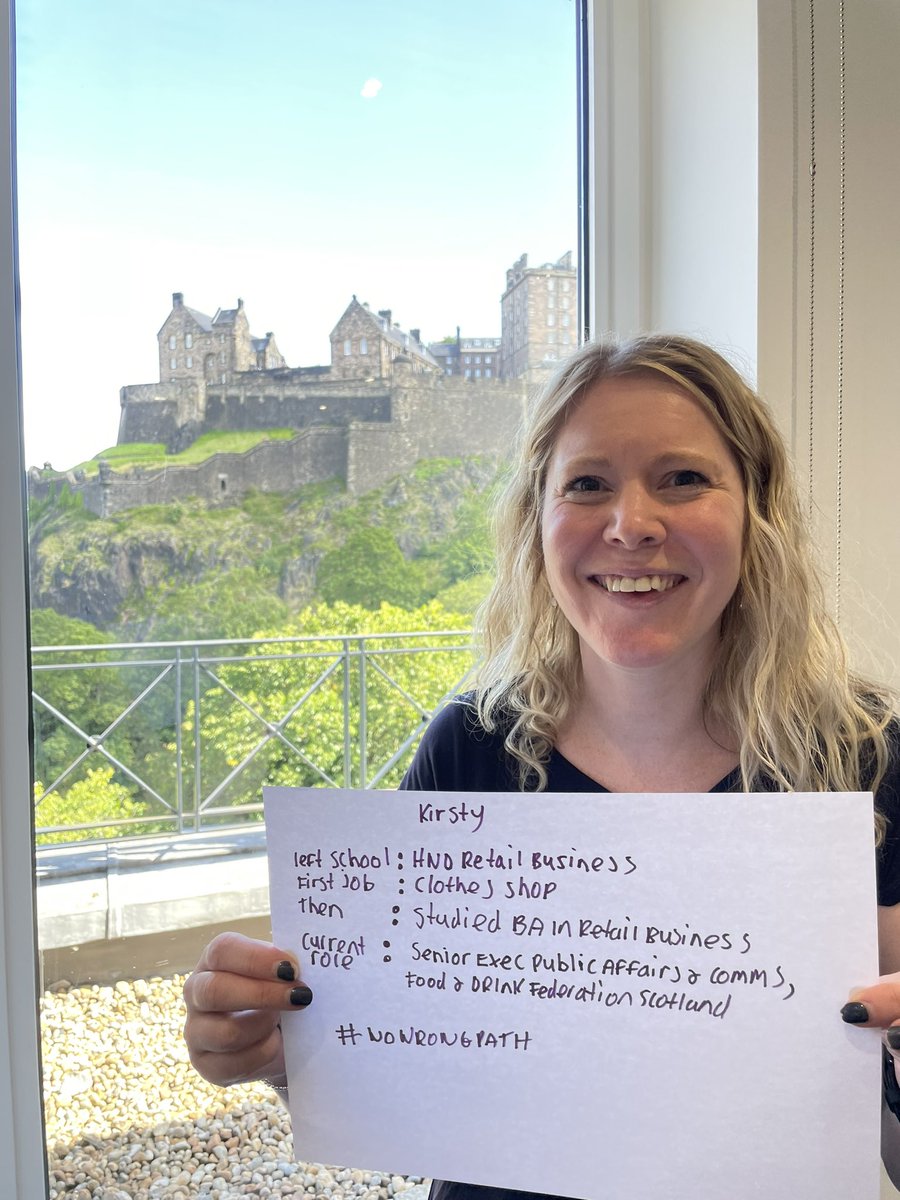 Kirsty
left school : HND Retail Business
First job : Clothes shop
then : Studied BA in Retail Business
Current role : Senior Exec Public Affairs & Comms,
Food & Drink Federation Scotland
#NOWRONGPATH